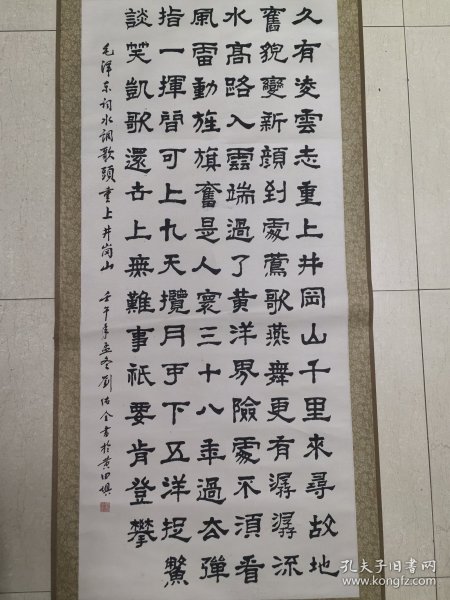 久有凌雲志重上井岡山千里來尋故地
舊貌變新顏到處鶯歌燕舞更有潺潺流
水高路入雲端過了黃洋界險處不須看
風雷動旌旗奮是人寰三十八年過去彈
指一揮間可上九天攬月可下五洋捉鱉
談笑凱歌還世上無難事祇要肯登攀
毛澤东詞水調歌頭重上井崗山 壬午年孟冬劉佑全書於黃田壩
孔夫子旧书网
www.kongfz.com